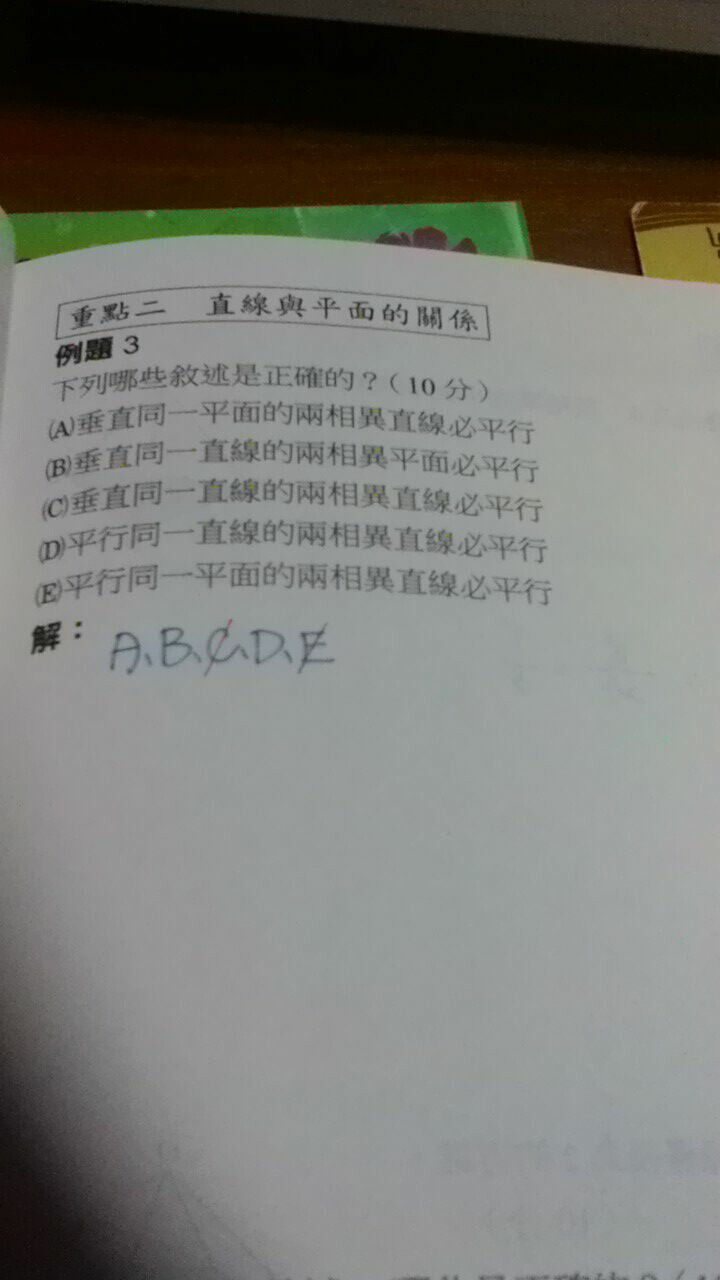 重點二 直線與平面的關係
例題 3
下列哪些敘述是正確的？（10 分）
(A)垂直同一平面的兩相異直線必平行
(B)垂直同一直線的兩相異平面必平行
(C)垂直同一直線的兩相異直線必平行
(D)平行同一直線的兩相異直線必平行
(E)平行同一平面的兩相異直線必平行
解：
A、B、C、D、E